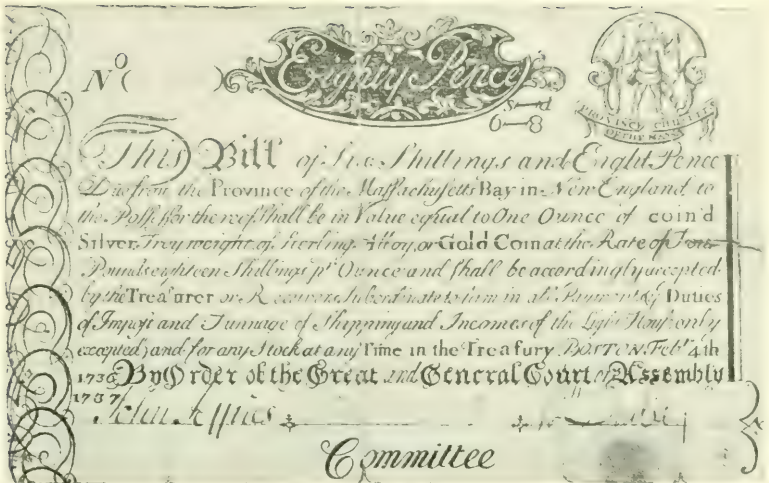 Nº( ) Eighty Pence
s d
6—8
PROVINCE
This Bill of Six Shillings and Eight Pence
Due from the Province of the Massachusetts Bay in New England to
the Possessor thereof shall be in Value equal to One Ounce of coin'd
Silver, Troy weight, of Sterling Alloy, or Gold Coin at the Rate of Four
Pounds eighteen Shillings pr Ounce and shall be accordingly accepted
by the Treasurer or Receivers Subordinate to him in all Payments (ye Duties
of Impost and Tunnage of Shipping and Incomes of the Light House only
excepted) and for any Stock at any Time in the Treasury BOSTON Feb. 4th
1736 By Order of the Great and General Court or Assembly
1737
John Jeffries
Committee